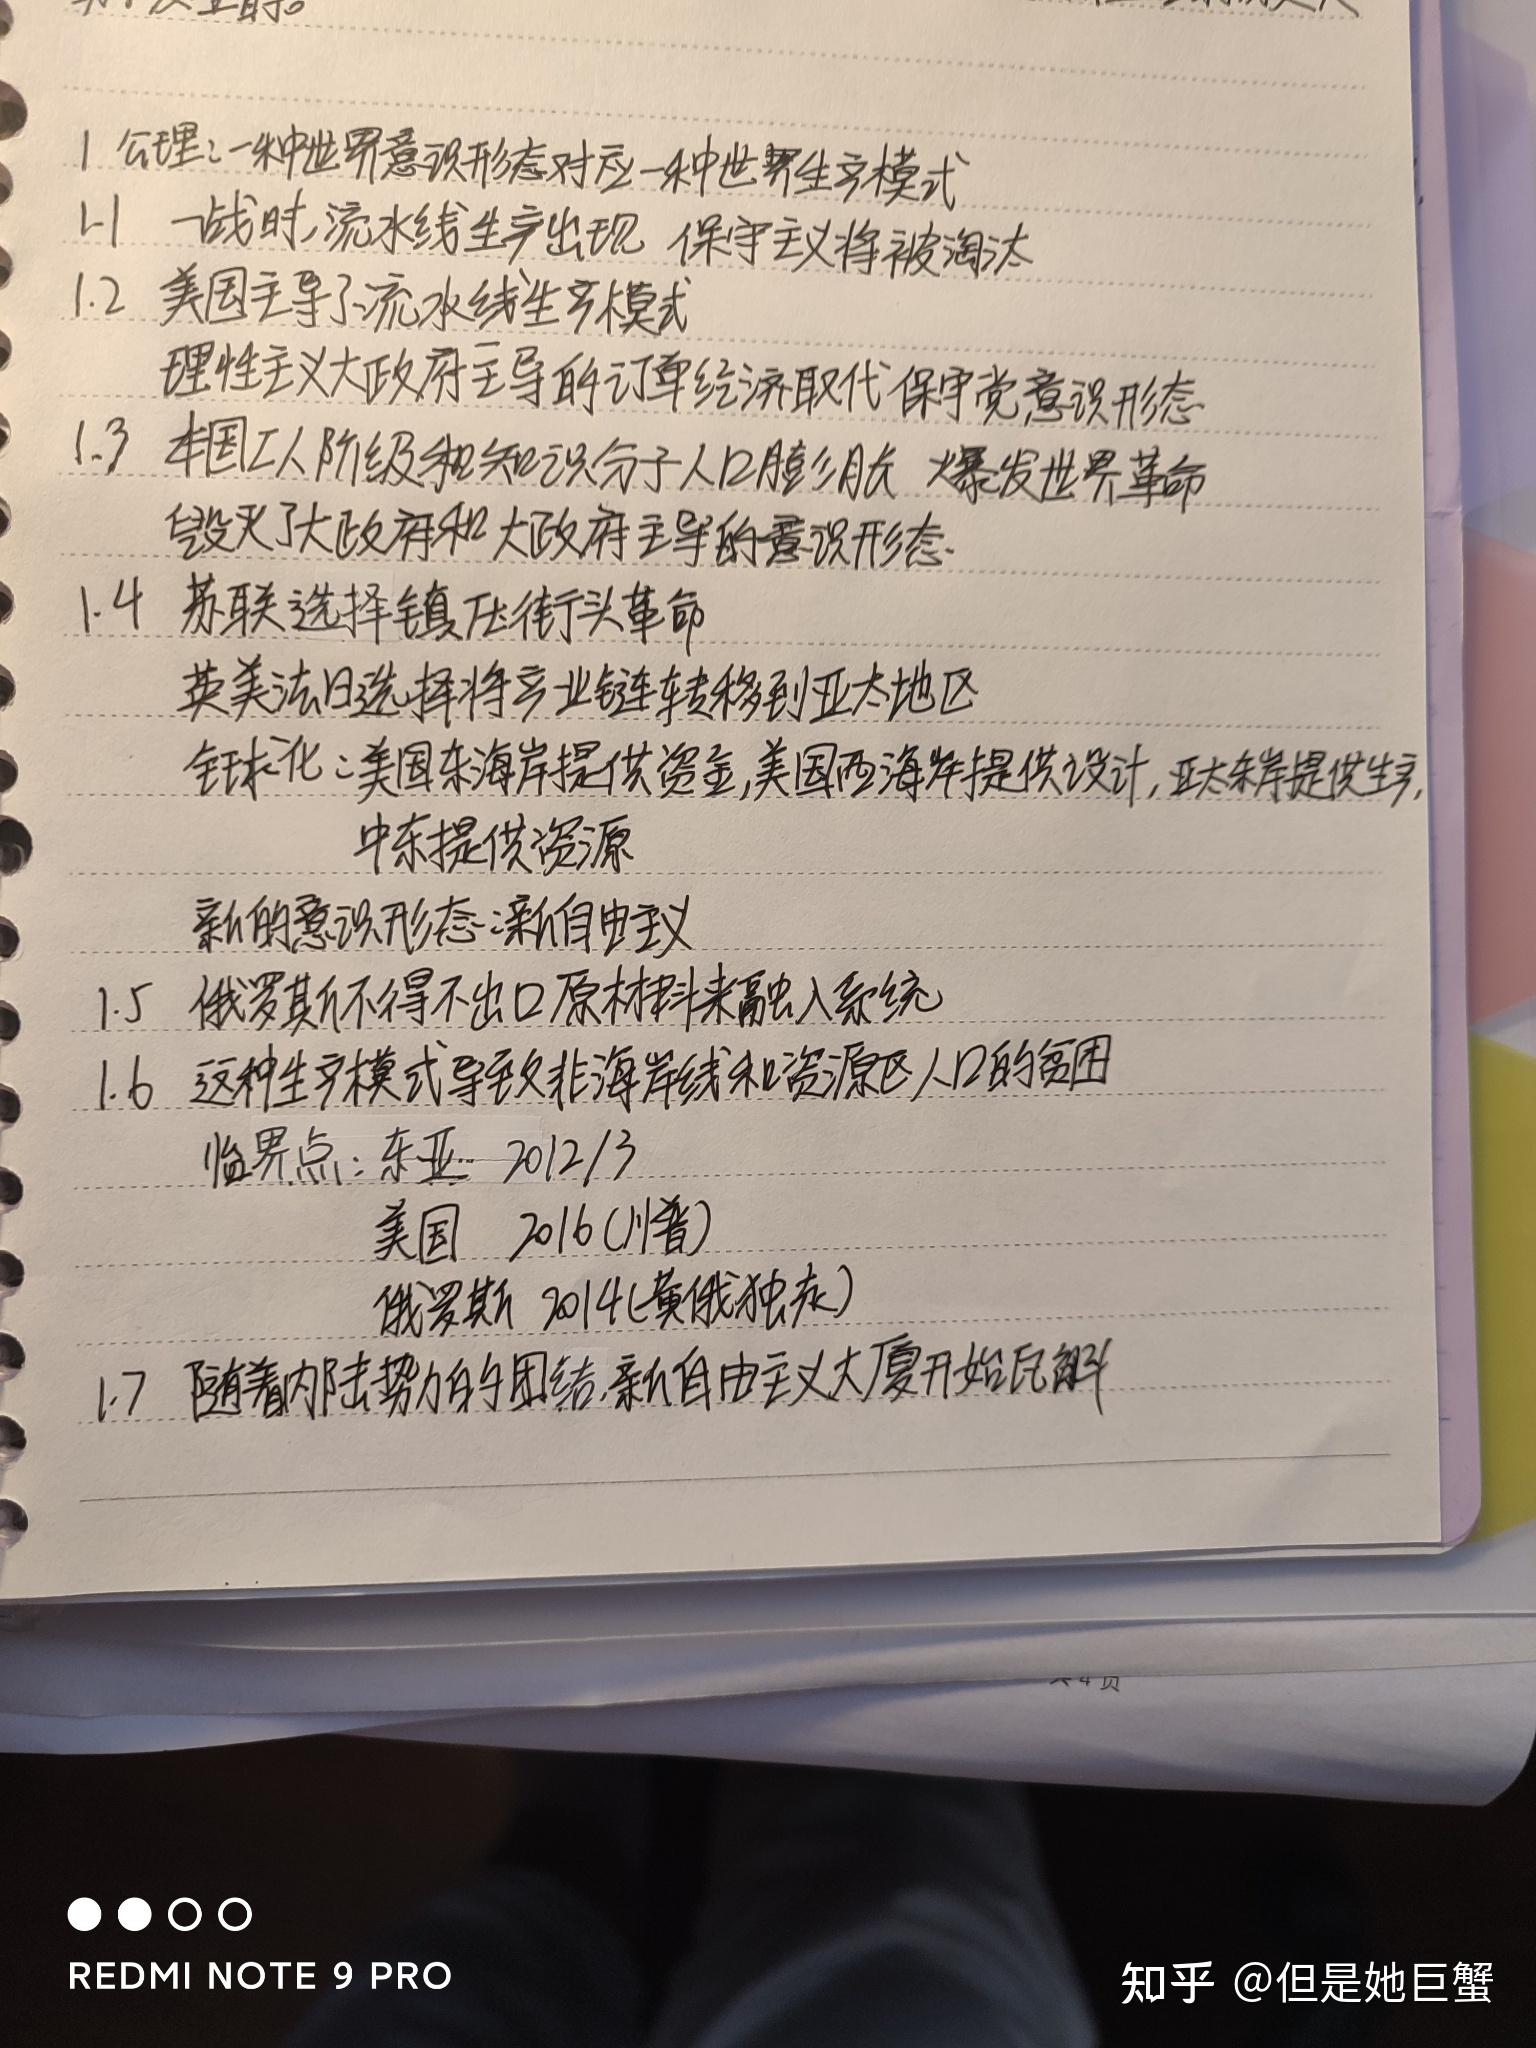 1 公理:一种世界意识形态对应一种世界生产模式
1.1 一战时,流水线生产出现 保守主义将被淘汰
1.2 美国主导了流水线生产模式
理性主义大政府主导的订单经济取代保守党意识形态
1.3 本国工人阶级和知识分子人口膨胀 爆发世界革命
毁灭了大政府和大政府主导的意识形态
1.4 苏联选择镇压街头革命
英美法日选择将产业链转移到亚太地区
全球化:美国东海岸提供资金,美国西海岸提供设计,亚太东岸提供生产,
中东提供资源
新的意识形态:新自由主义
1.5 俄罗斯不得不出口原材料来融入系统
1.6 这种生产模式导致非海岸线和资源区人口的贫困
临界点:东亚 2012/3
美国 2016(川普)
俄罗斯 2014(黄俄独裁)
1.7 随着内陆势力的团结,新自由主义大厦开始瓦解
共4页
REDMI NOTE 9 PRO
知乎 @但是她巨蟹